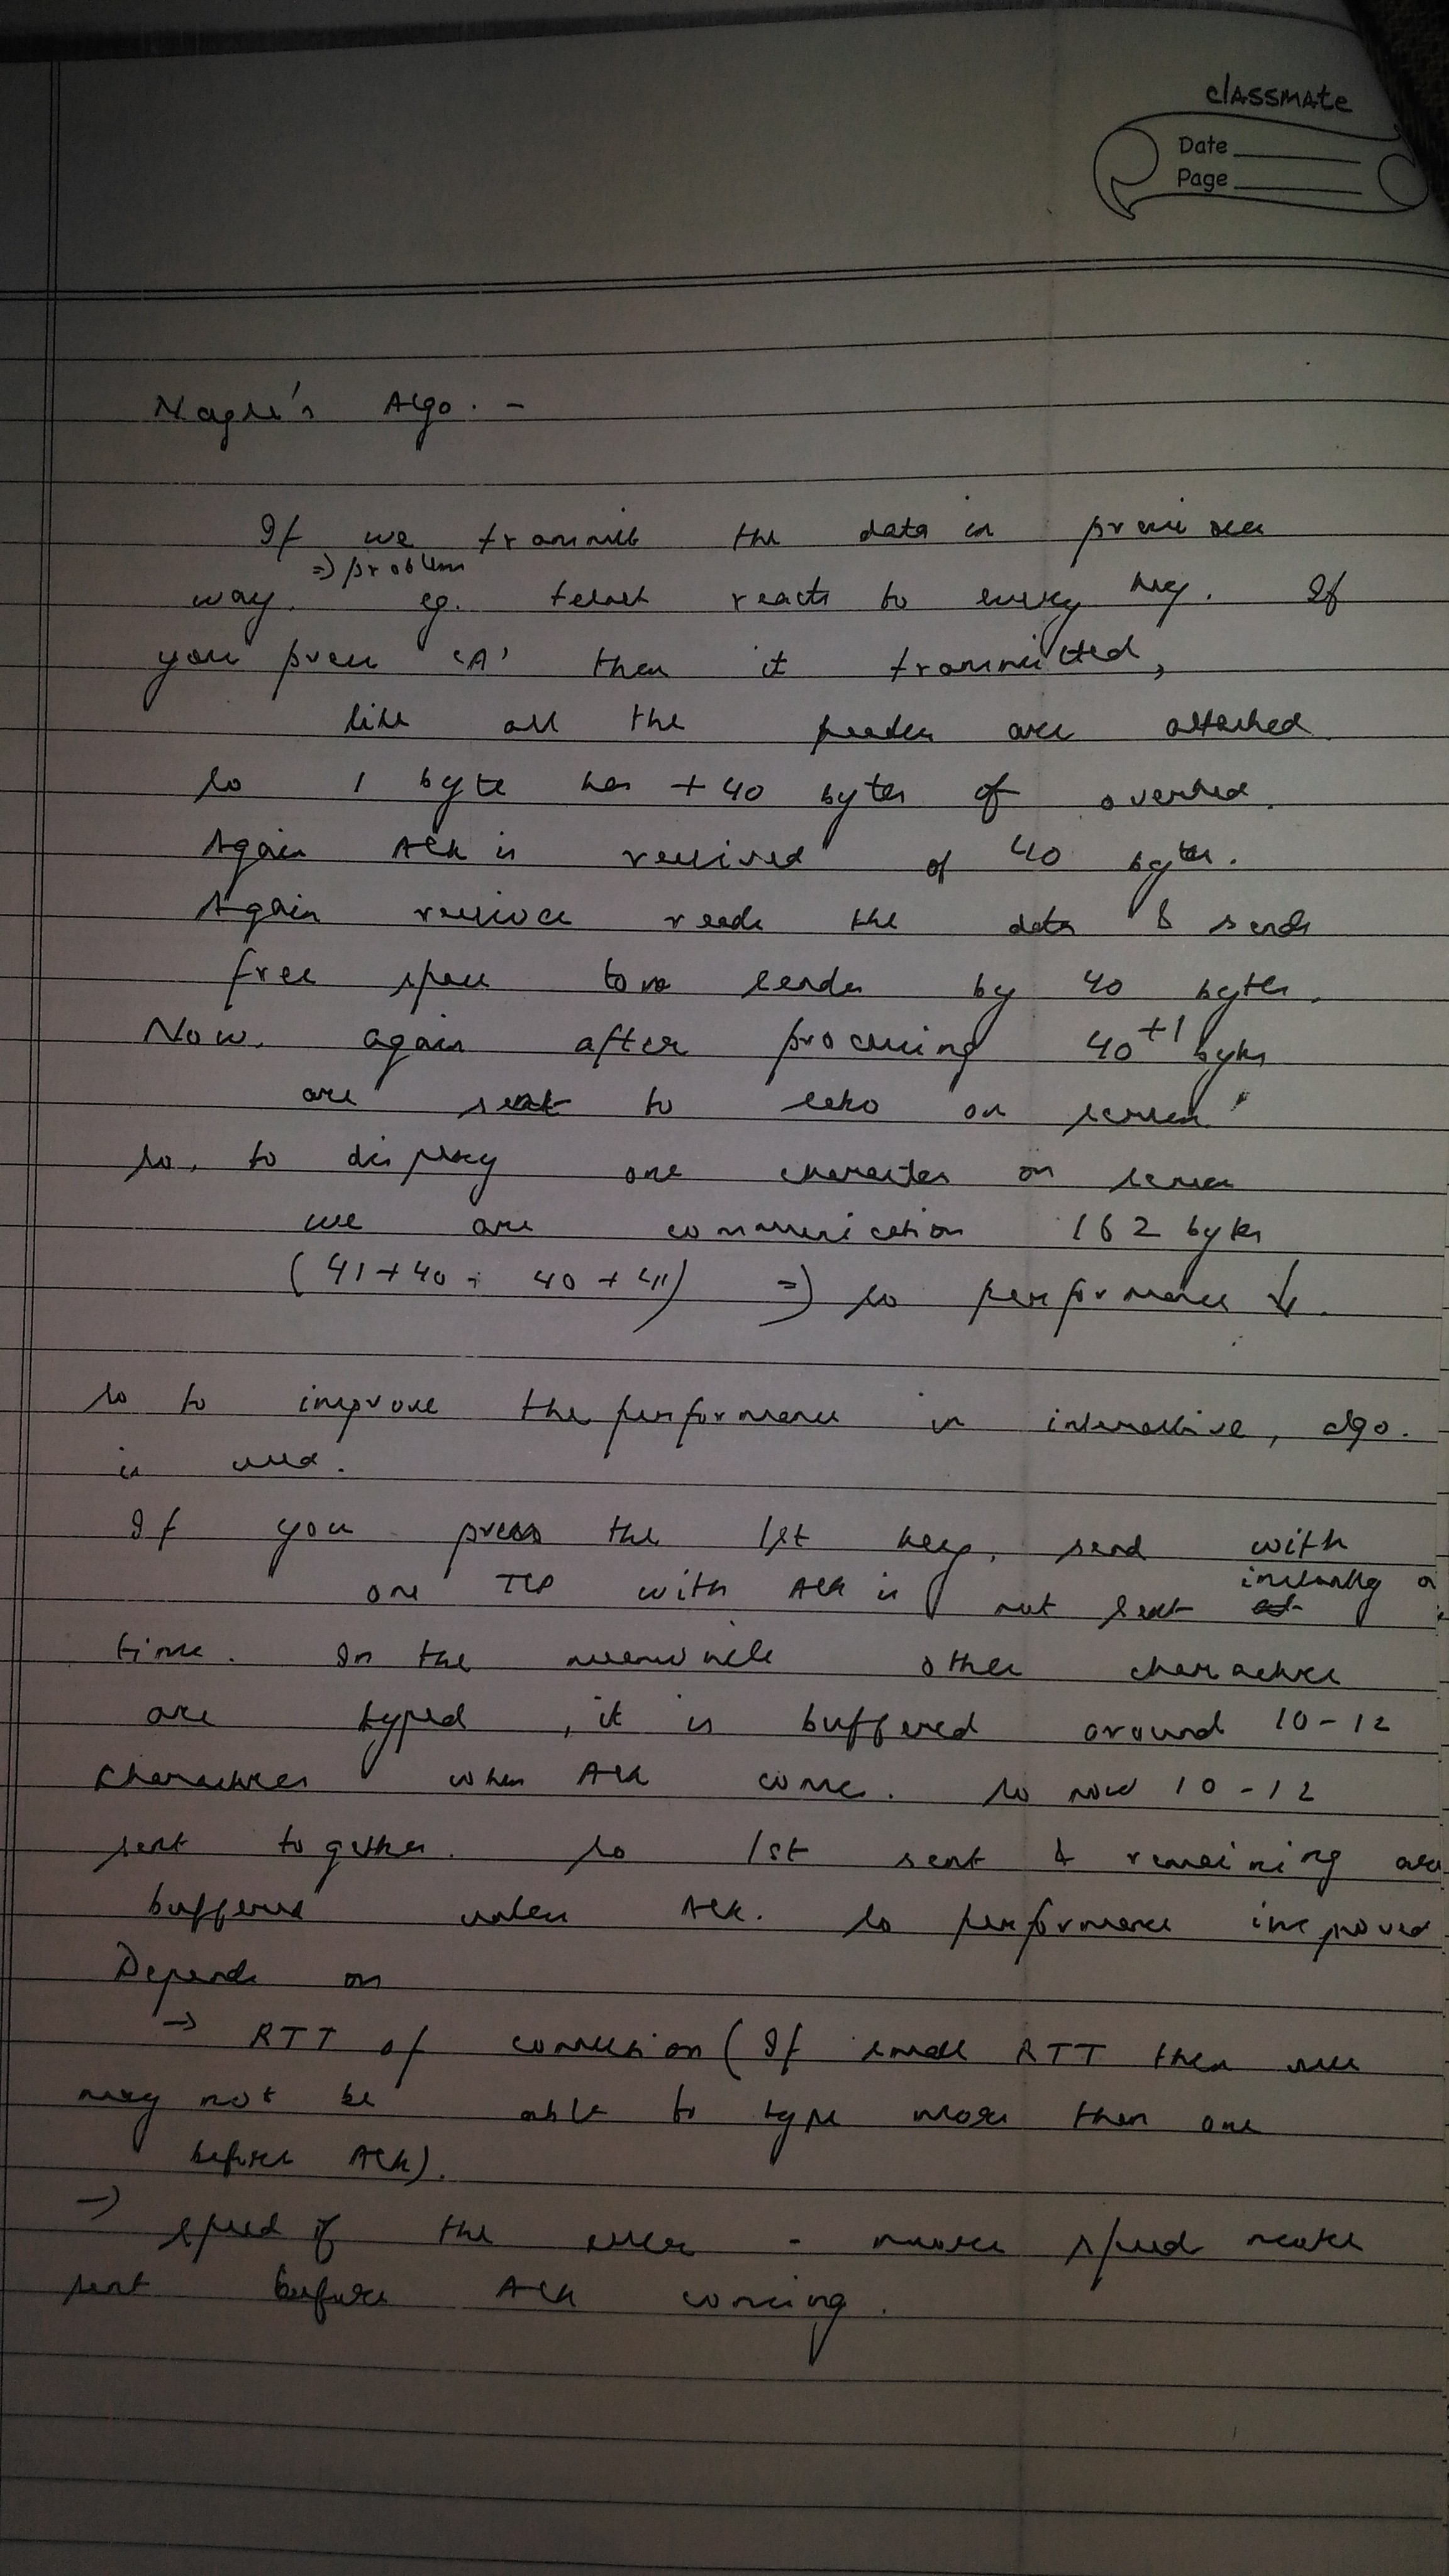 classmate
Date
Page
Nagle's Algo. -
If we transmit the data in previous
=> problem
way. eg. telnet reacts to every key. If
you press 'A' then it transmitted,
like all the header are attached
so 1 byte has +40 bytes of overhead.
Again Ack is received of 40 bytes.
Again receiver reads the data & sends
free space to sender by 40 bytes.
Now, again after processing 40+1 bytes
are sent to echo on screen.
so, to display one character on screen
we are communication 162 bytes
(41+40+ 40+41) => so performance ↓.
so to improve the performance in interactive, algo.
is used.
If you press the 1st key, send with
one TCP with Ack is not sent instantly
time. In the meanwhile other character
are typed, it is buffered around 10-12
characters when Ack come. so now 10-12
sent together. so 1st sent & remaining are
buffered unless Ack. so performance improved
Depends on
→ RTT of connection (If small RTT then user
may not be able to type more than one
before Ack).
→ speed of the user - more speed more
sent before Ack coming.